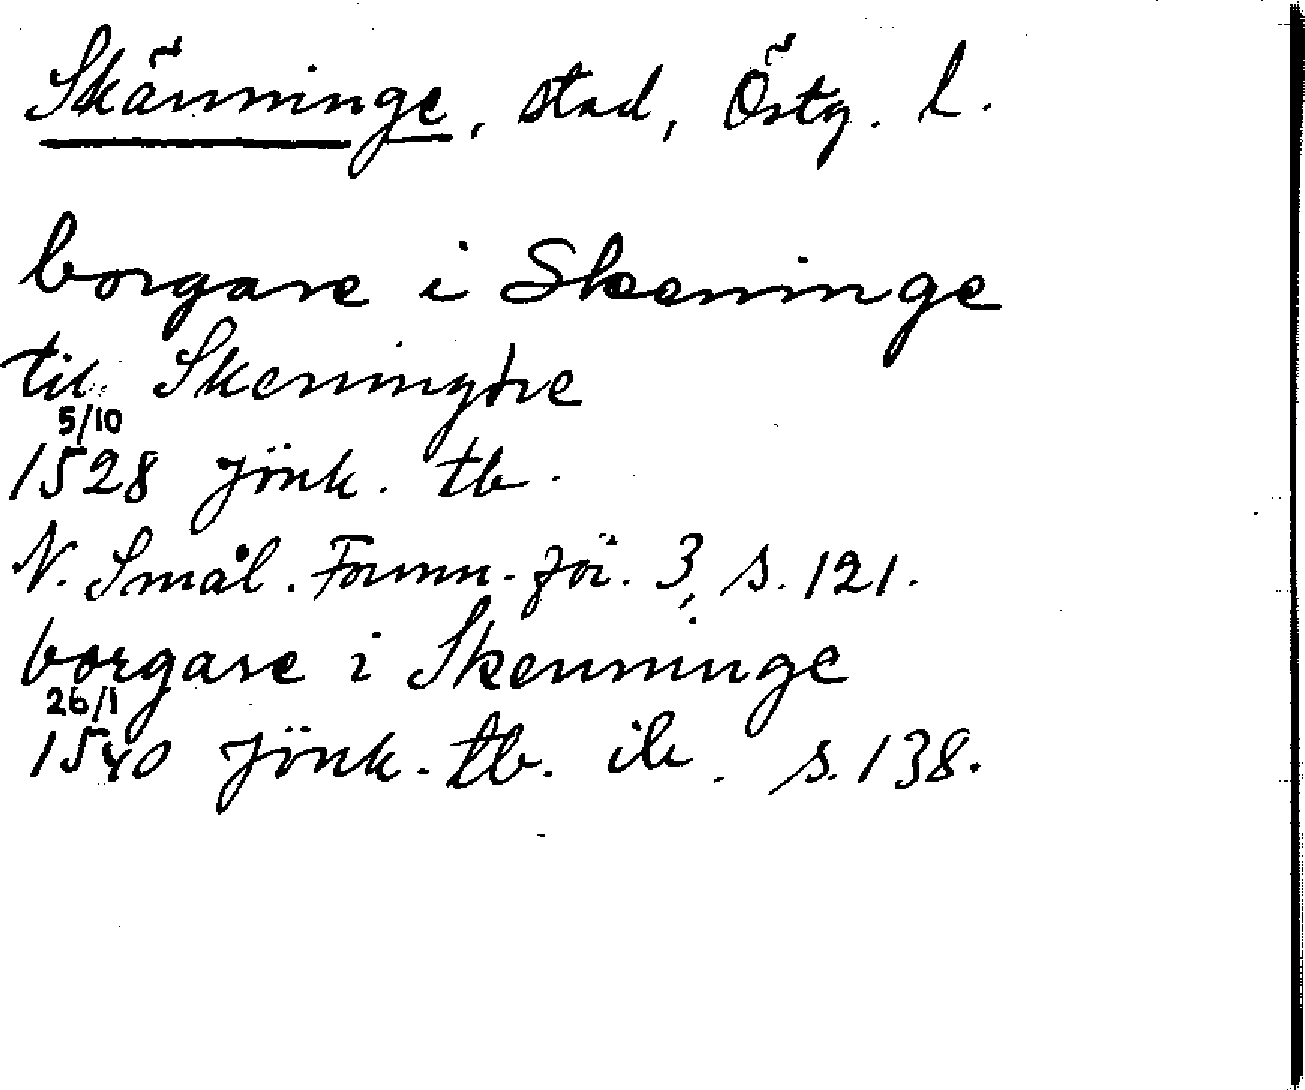 Skänninge, stad, Östg. l.
borgare i Skeninge
til Skeningæ
5/10
1528 Jönk. tb.
N. Smål. Fornm. för. 3, s. 121.
borgare i Skenninge
26/1
1540 Jönk. tb. ib. s. 138.